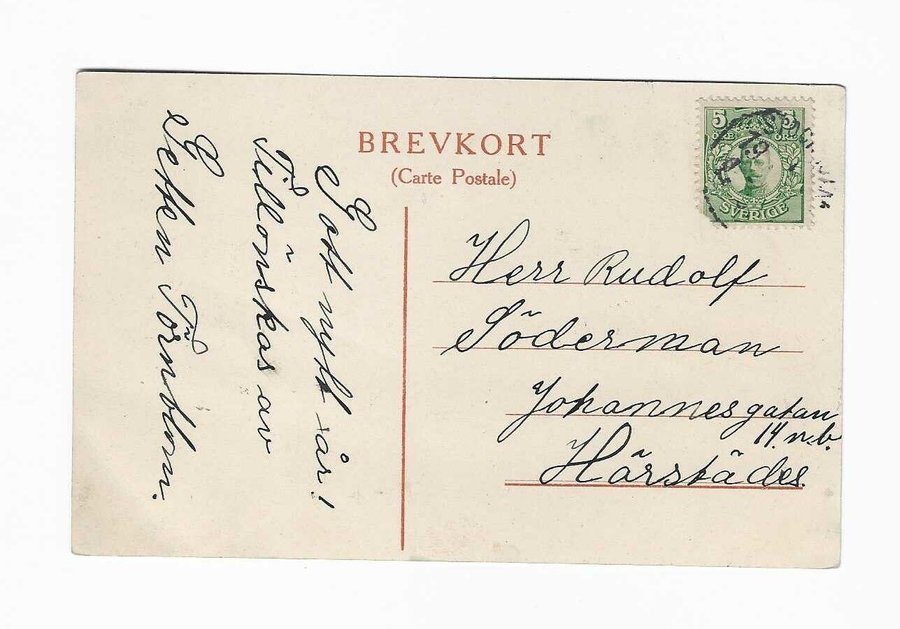 BREVKORT
(Carte Postale)
5 5
SVERIGE
Gott nytt år!
Tillönskas av
Törnblom.
Herr Rudolf
Söderman
Johannesgatan
14. n.b.
Härstädes.